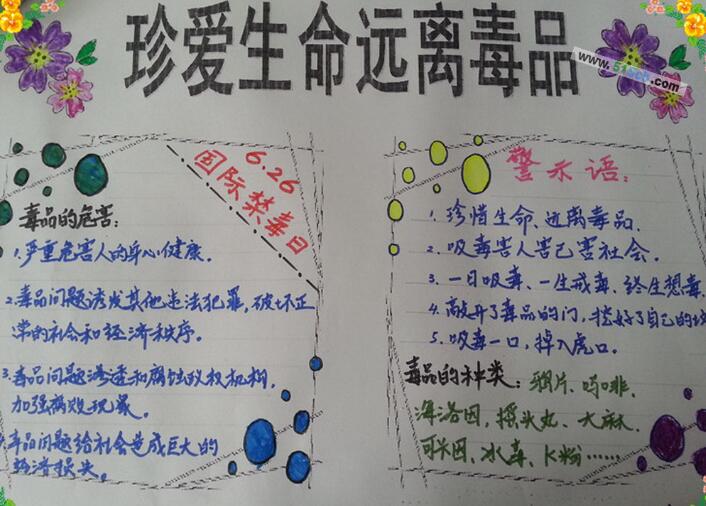 珍爱生命远离毒品
www.51scb.com
6.26
国际禁毒日
毒品的危害:
1.严重危害人的身心健康.
2.毒品问题诱发其他违法犯罪,破坏正
常的社会和经济秩序。
3.毒品问题渗透和腐蚀政权机构,
加强腐败现象。
毒品问题给社会造成巨大的
经济损失。
警示语:
1.珍惜生命、远离毒品.
2.吸毒害人害己害社会.
3.一日吸毒、一生戒毒、终生想毒
4.敞开了毒品的门,挖好了自己的
5.吸毒一口,掉入虎口.
毒品的种类:鸦片、吗啡、
海洛因,摇头丸、大麻,
可卡因,冰毒、K粉……